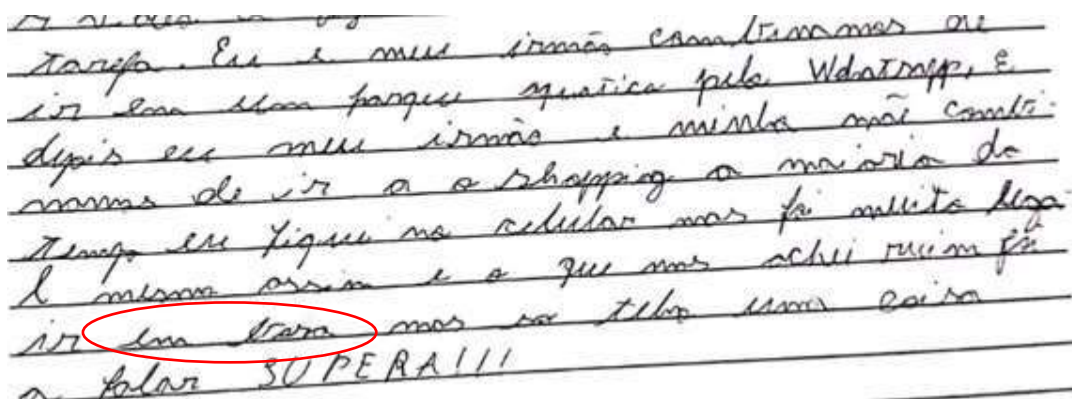 tarefa. Eu e meu irmão combinamos de
ir em um parque aquatica pelo Whatsapp, e
depis eu meu irmão e minha mãe combi-
namos de ir a o shopping a maioria do
tempo eu fiquei no celular mas foi muito lega
l mesmo assim e o que mas achei ruim foi
ir em bora mas so telho uma coisa
a falar SUPERA!!!